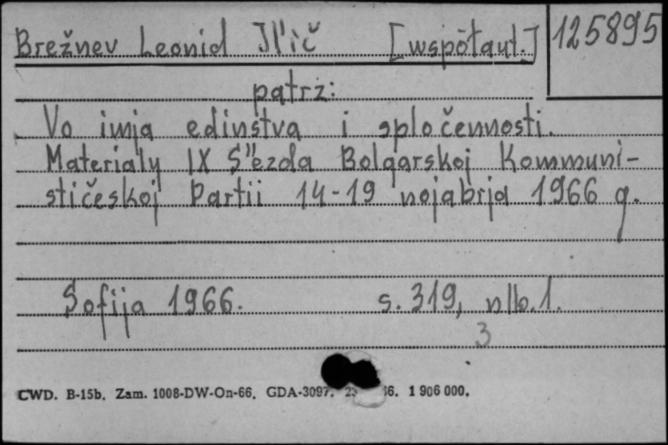 Brežnev Leonid Il'ič [współaut.] 125895
patrz:
Vo imja edinstva i spločennosti.
Materialy IX S"ezda Bolgarskoj Kommuni-
stičeskoj Partii 14-19 nojabrja 1966 g.
Sofija 1966. s. 319, nlb. 1.
3
CWD. B-15b. Zam. 1008-DW-On-66. GDA-3097. 66. 1 906 000.